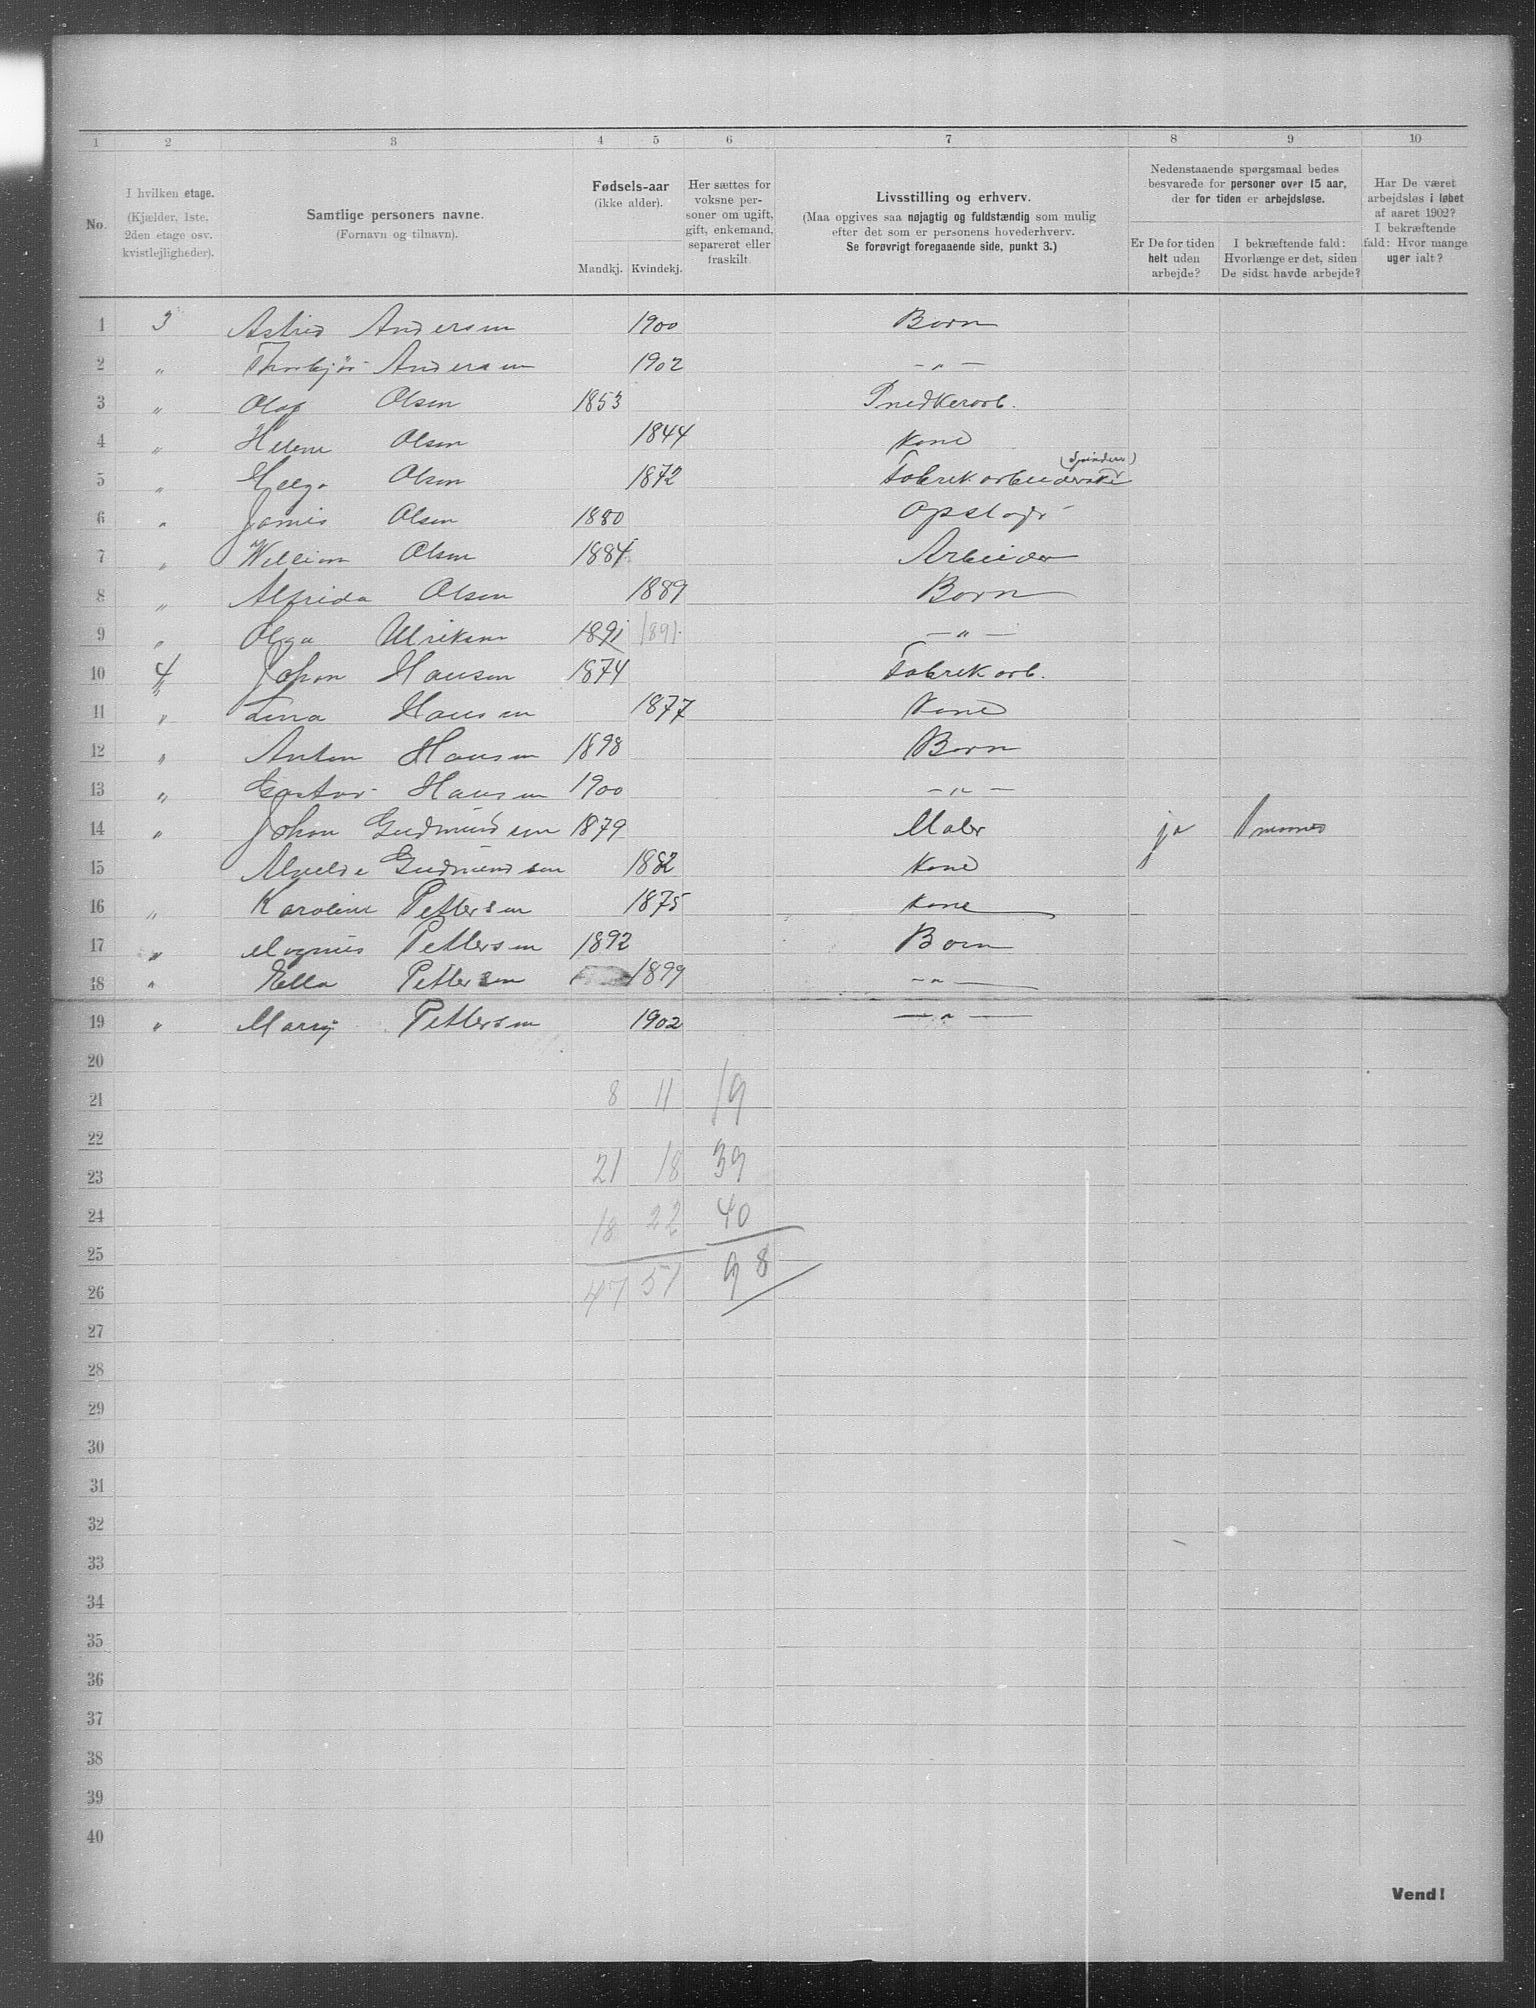 1 2 3 4 5 6 7 8 9 10
No.
I hvilken etage.
(Kjælder, 1ste,
2den etage osv.
kvistlejligheder).
Samtlige personers navne.
(Fornavn og tilnavn).
Fødsels-aar
(ikke alder).
Mandkj. Kvindekj.
Her sættes for
voksne per-
soner om ugift,
gift, enkemand,
separeret eller
fraskilt.
Livsstilling og erhverv.
(Maa opgives saa nøjagtig og fuldstændig som mulig
efter det som er personens hovederhverv.
Se forøvrigt foregaaende side, punkt 3.)
Nedenstaaende spørgsmaal bedes
besvarede for personer over 15 aar,
der for tiden er arbejdsløse.
Er De for tiden
helt uden
arbejde?
I bekræftende fald:
Hvorlænge er det, siden
De sidst havde arbejde?
Har De været
arbejdsløs i løbet
af aaret 1902?
I bekræftende
fald: Hvor mange
uger ialt?
1 3 Astrid Andersen 1900 Barn
2 " Thorbjør Andersen 1902 - " -
3 " Olaf Olsen 1853 Snedkerarb.
4 " Helene Olsen 1844 Kone
5 " Helga Olsen 1872 Fabrekarbeiderske (Spinderi)
6 " Jamis Olsen 1880 Opslagr
7 " William Olsen 1884 Arbeider
8 " Alfrida Olsen 1889 Barn
9 " Olga Ulriksen 1891 1891 - " -
10 4 Johan Hansen 1874 Fabrekarb.
11 " Lina Hansen 1877 Kone
12 " Anton Hansen 1898 Barn
13 " Gustav Hansen 1900 - " -
14 " Johan Gudmundsen 1879 Maler ja 1 maaned
15 Alvilde Gudmundsen 1882 Kone
16 " Karoline Pettersen 1875 Kone
17 " Magnus Pettersen 1892 Barn
18 " Ella Pettersen 1899 - " -
19 " Marry Pettersen 1902 - " -
20
21 8 11 19
22
23 21 18 39
24 18 22 40
25
26 47 51 98
27
28
29
30
31
32
33
34
35
36
37
38
39
40
Vend!